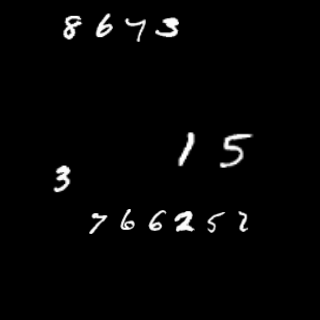 8673
15
3
766252